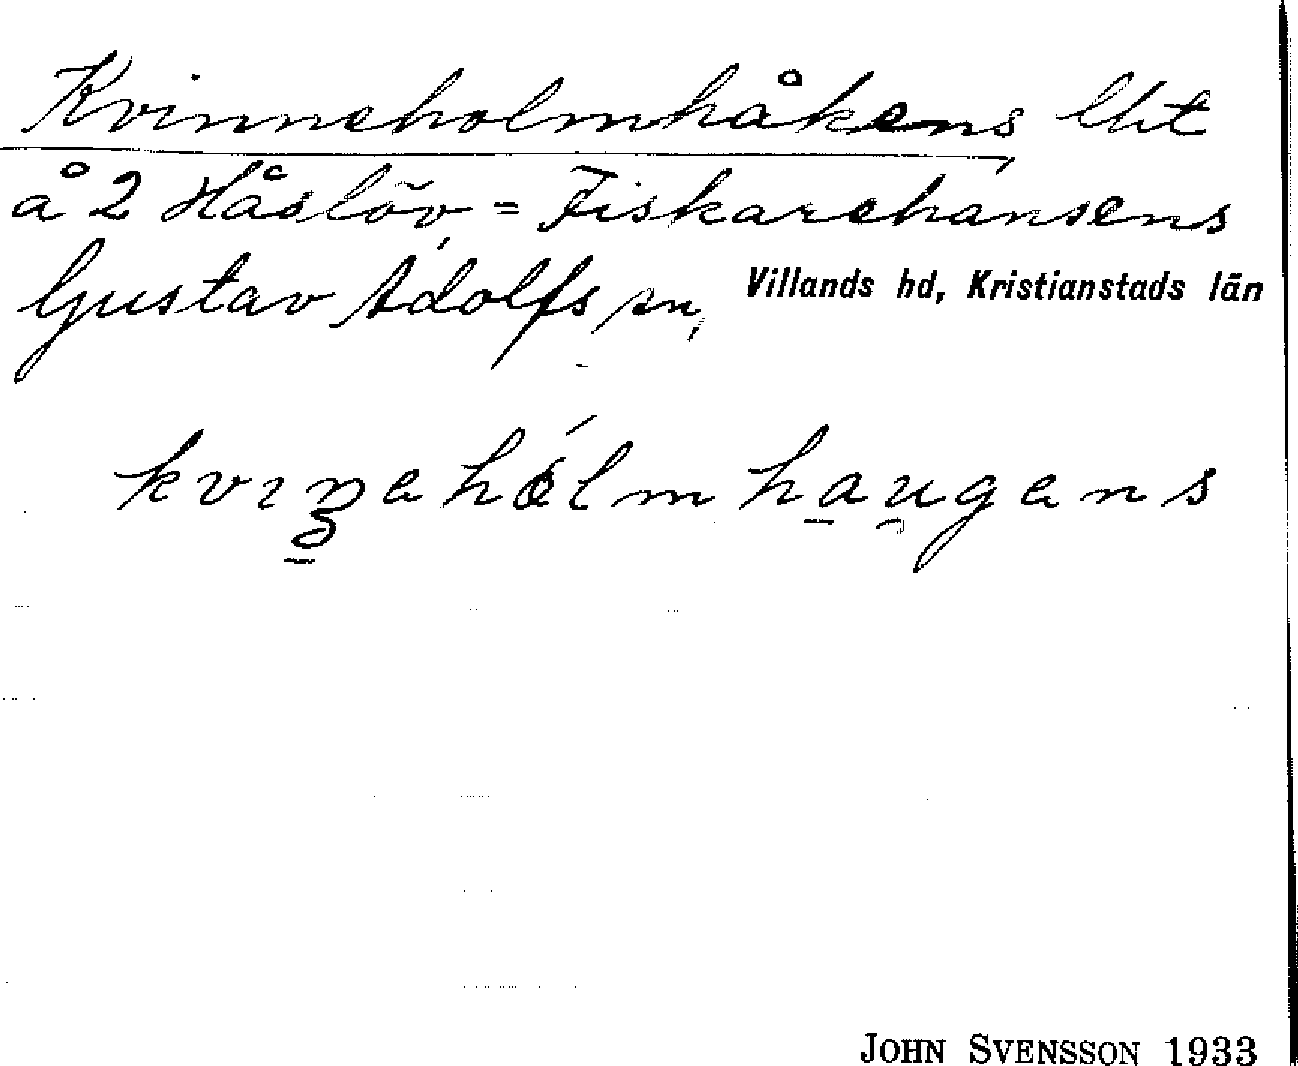 Kvinneholmhåkens, lht
å 2 Håslöv, = Fiskarehansens
Gustav Adolfs sn, Villands hd, Kristianstads län
JOHN SVENSSON 1933